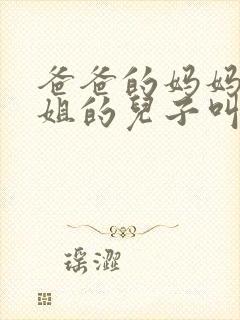 爸爸的妈妈
姐的兒子叫
瑶澀